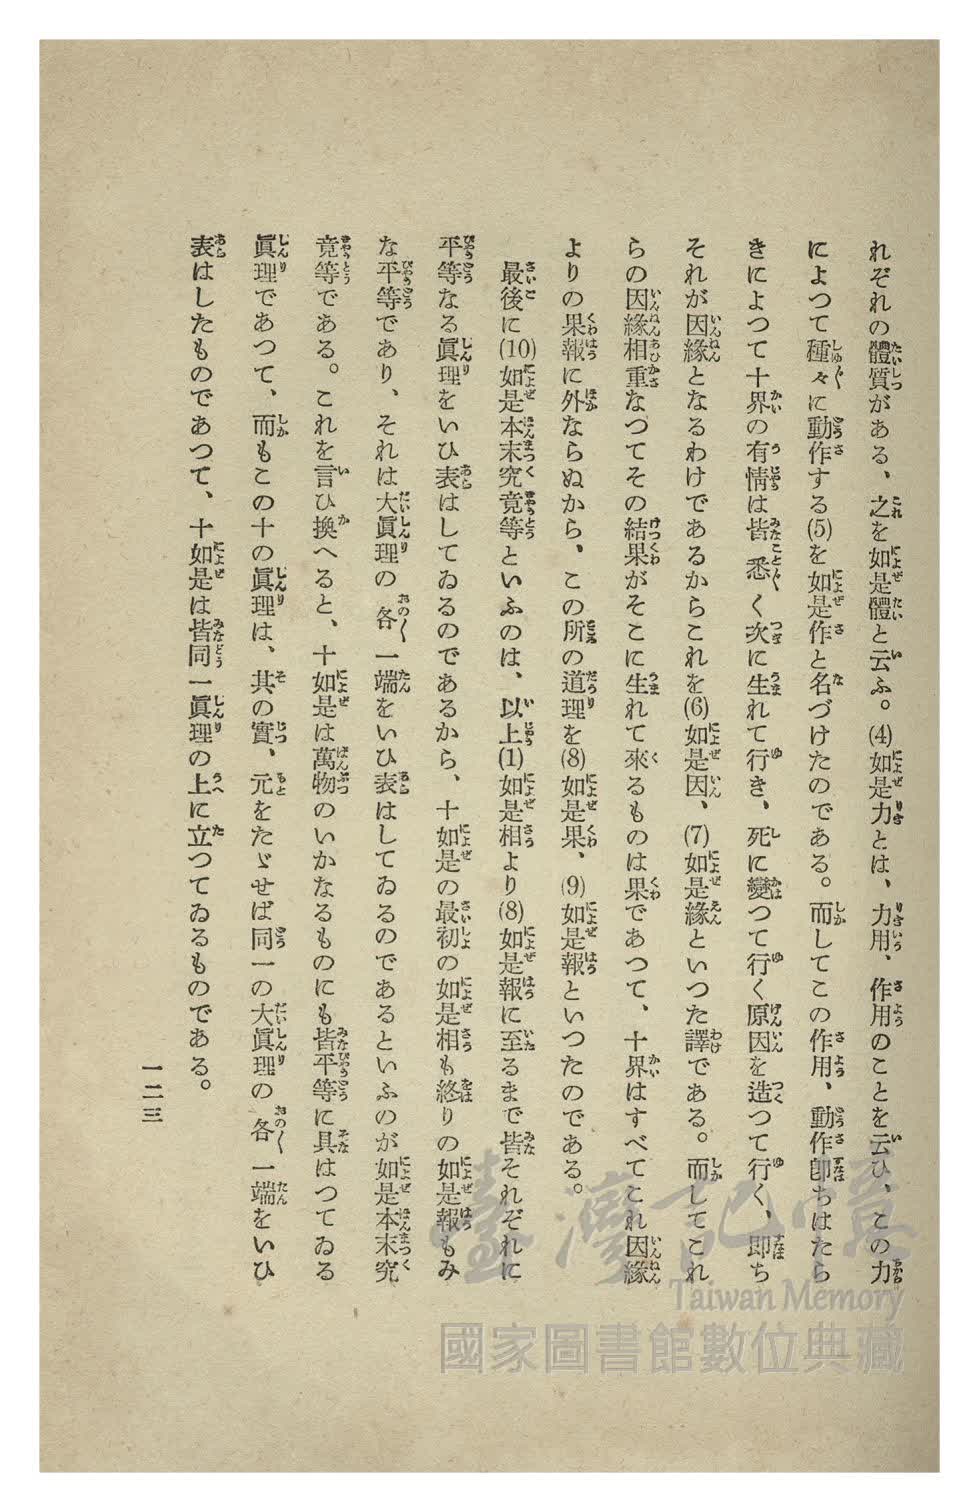 れぞれの體質がある、之を如是體と云ふ。(4)如是力とは、力用、作用のことを云ひ、この力
によつて種々に動作する(5)を如是作と名づけたのである。而してこの作用、動作卽ちはたら
きによつて十界の有情は皆悉く次に生れて行き、死に變つて行く原因を造つて行く、卽ち
それが因緣となるわけであるからこれを(6)如是因、(7)如是緣といつた譯である。而してこれ
らの因緣相重なつてその結果がそこに生れて來るものは果であつて、十界はすべてこれ因緣
よりの果報に外ならぬから、この所の道理を(8)如是果、(9)如是報といつたのである。
最後に(10)如是本末究竟等といふのは、以上(1)如是相より(8)如是報に至るまで皆それぞれに
平等なる眞理をいひ表はしてゐるのであるから、十如是の最初の如是相も終りの如是報もみ
な平等であり、それは大眞理の各一端をいひ表はしてゐるのであるといふのが如是本末究
竟等である。これを言ひ換へると、十如是は萬物のいかなるものにも皆平等に具はつてゐる
眞理であつて、而もこの十の眞理は、其の實、元をたゞせば同一の大眞理の各一端をいひ
表はしたものであつて、十如是は皆同一眞理の上に立つてゐるものである。
一二三
臺灣記憶
Taiwan Memory
國家圖書館數位典藏